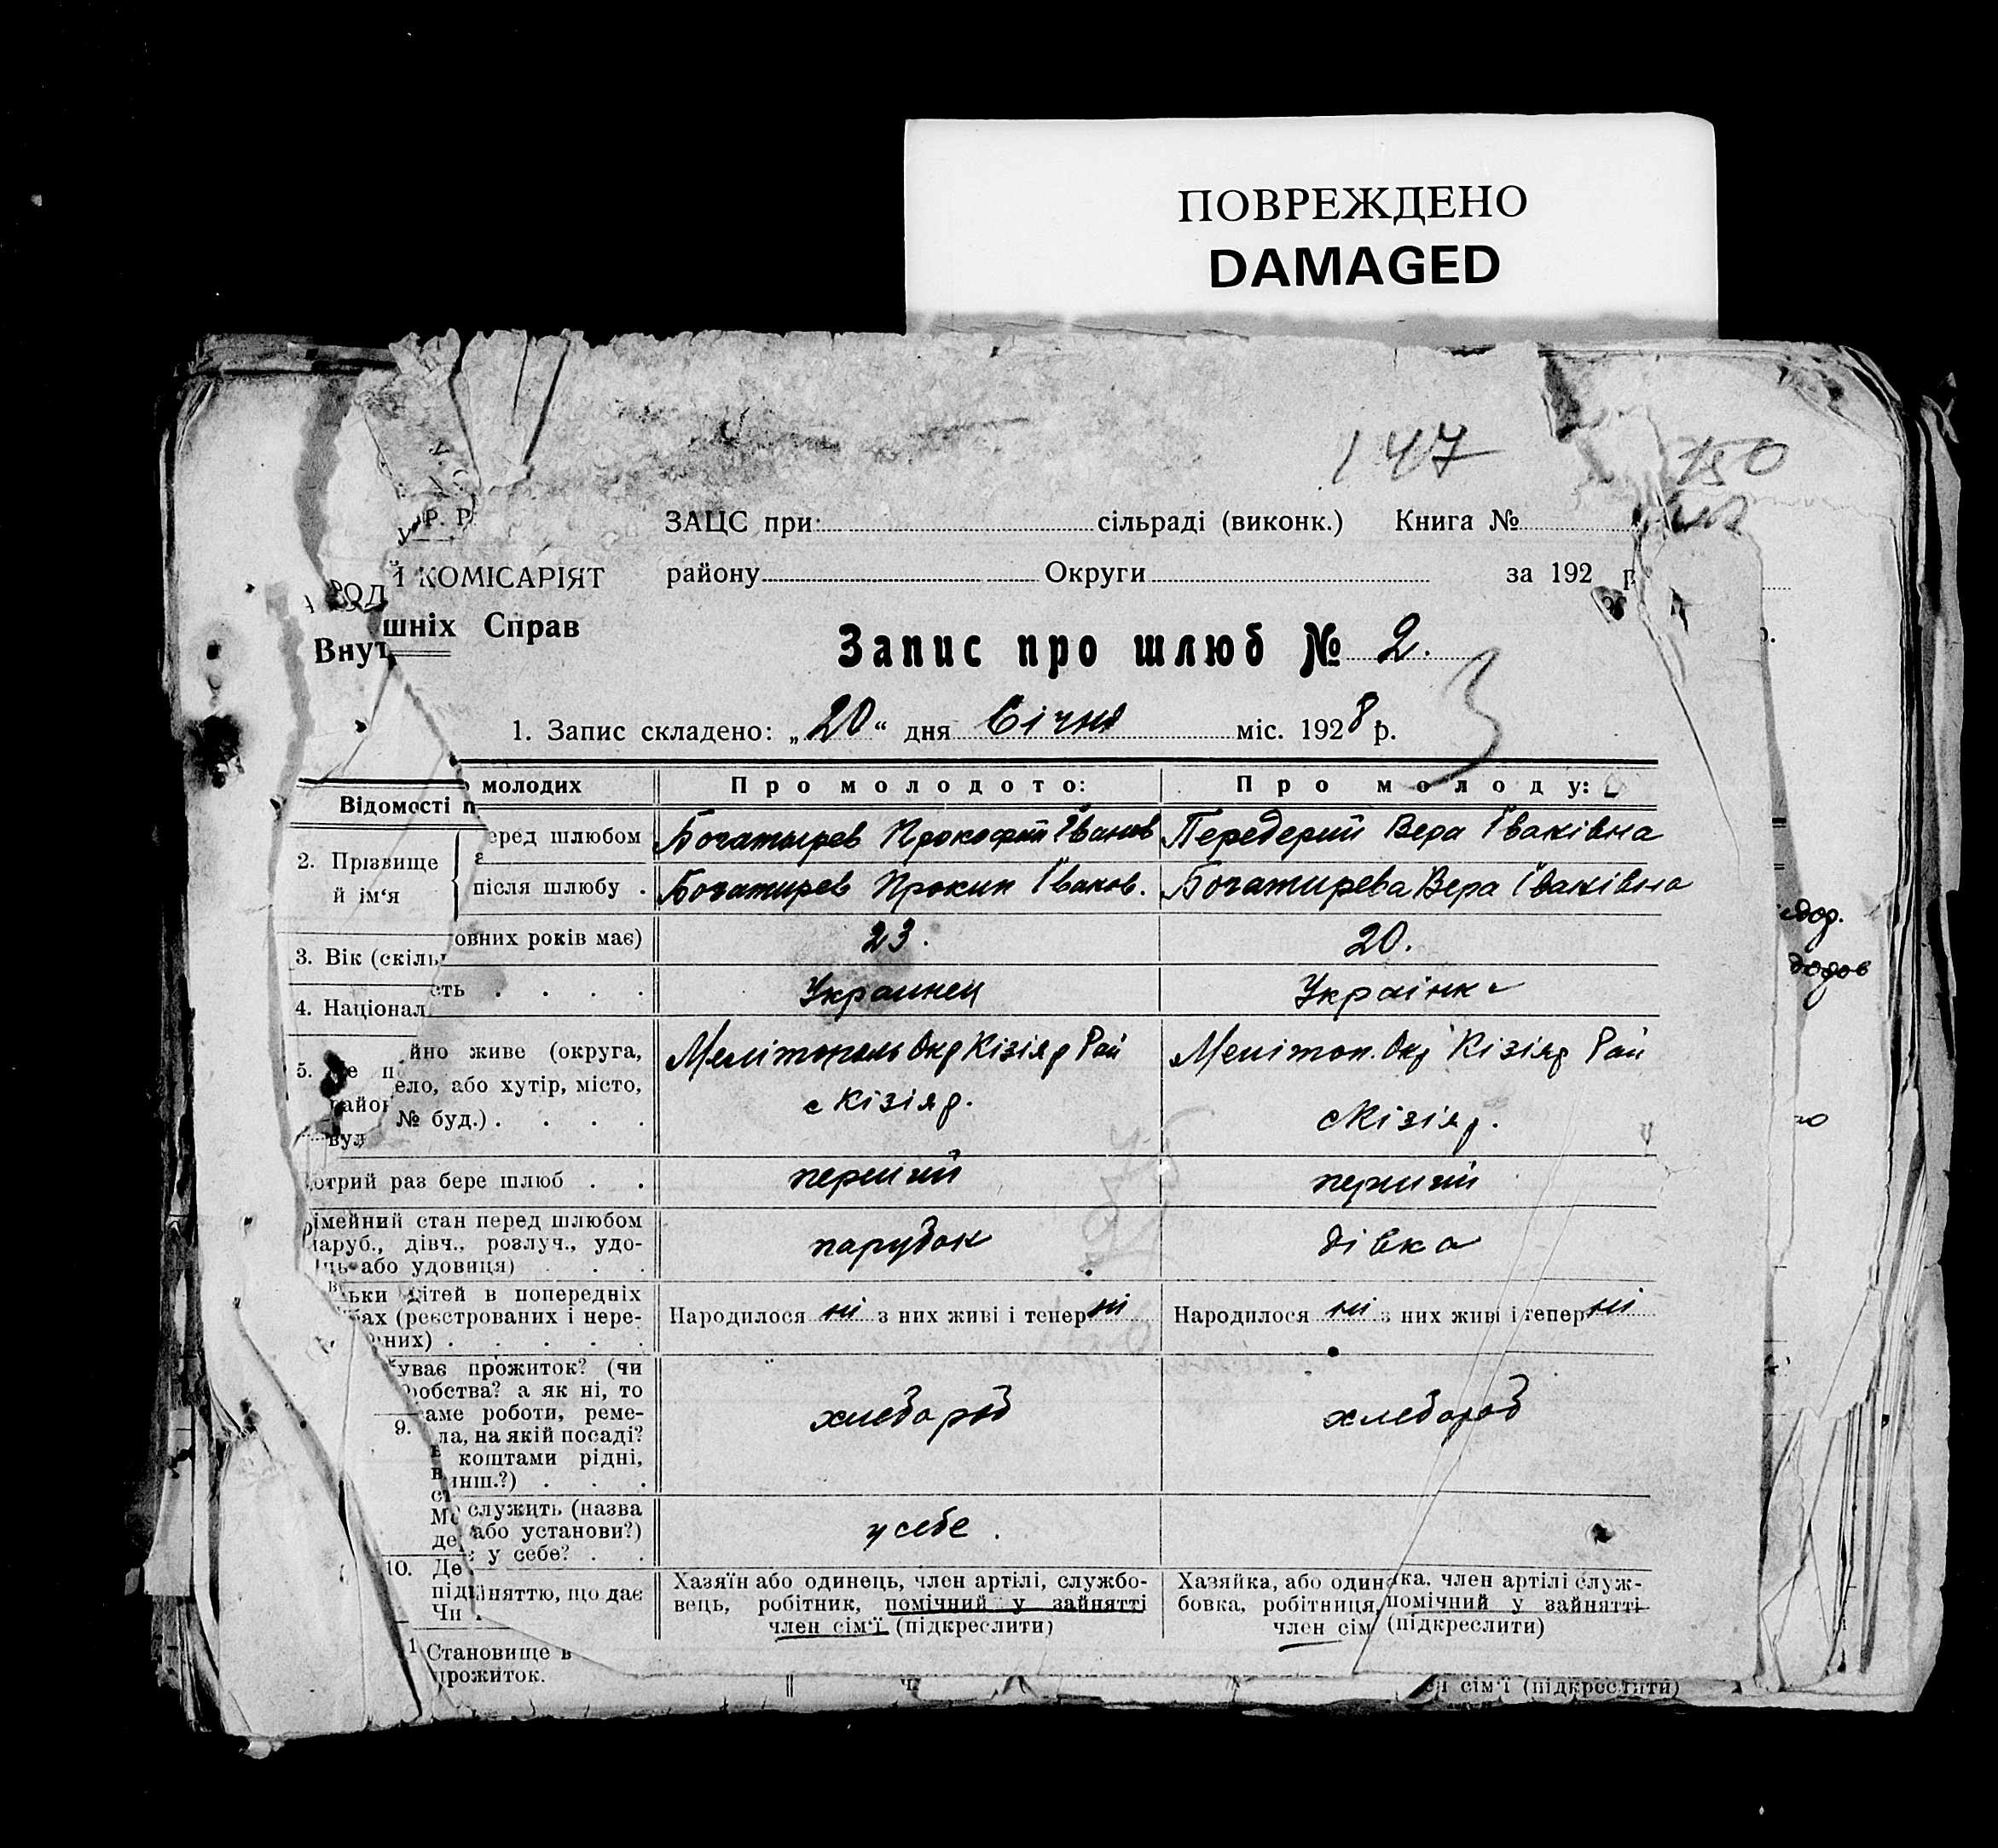 ПОВРЕЖДЕНО
DAMAGED
147
150
Р. Р.
ЗАЦС при сільраді (виконк.) Книга №
КОМІСАРІЯТ
району Округи за 192 р
Внут шніх Справ
Запис про шлюб № 2.
3
1. Запис складено: „20“ дня Січня міс. 1928 р.
Відомості п молодих
Про молодого:
Про молоду:
2. Прізвище й ім‘я
еред шлюбом
Богатырев Прокофий Іванов
Передерий Вера Іванівна
після шлюбу .
Богатирев Прокип Іванов.
Богатирева Вера Іванівна
3. Вік (скіль овних років має)
23.
20.
4. Націонал сть . . . .
Украинец
Українка
5. йно живе (округа,
район ело, або хутір, місто,
вул № буд.) . . . .
Мелітополь Окр Кізіяр Рай
с Кізіяр.
Мелітоп. Окр Кізіяр Рай
с Кізіяр.
отрий раз бере шлюб . .
перший
перший
імейний стан перед шлюбом
паруб., дівч., розлуч., удо-
ць або удовиця) . . .
парубок
дівка
ьки дітей в попередніх
бах (реєстрованих і нере-
них) . . . . .
Народилося ні з них живі і тепер ні
Народилося ні з них живі і тепер ні
9. уває прожиток? (чи
робства? а як ні, то
саме роботи, реме-
ла, на якій посаді?
коштами рідні,
инш.?) . . .
хлебороб
хлебороб
служить (назва
або установи?)
у себе? . .
у себе.
10. Де
підприняттю, що дає
Чи
Хазяїн або одинець, член артілі, службо-
вець, робітник, помічний у зайнятті
член сім‘ї (підкреслити)
Хазяйка, або одиначка, член артілі служ-
бовка, робітниця, помічний у зайнятті
член сім (підкреслити)
Становище в
прожиток.
сім‘ї (підкреслити)